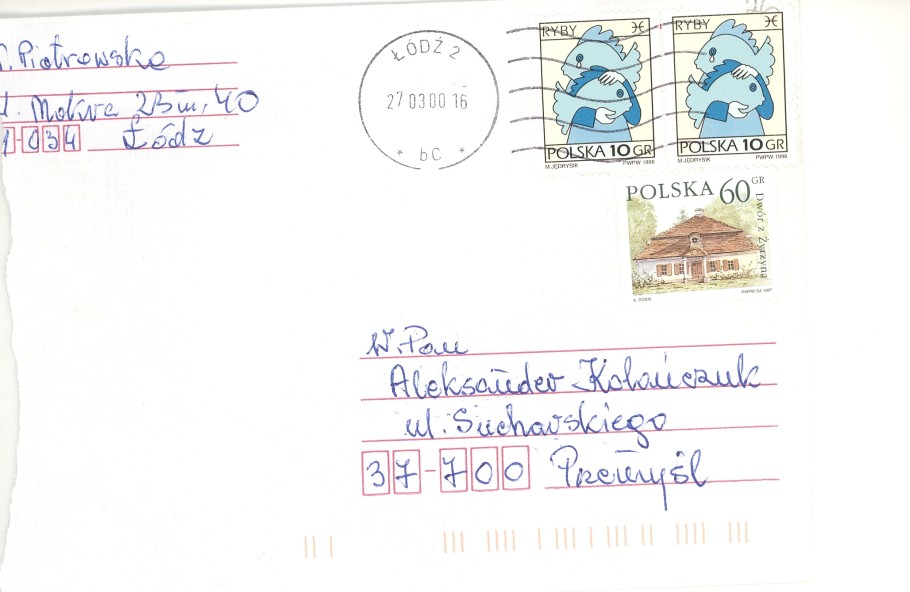 Piotrowska
Mokra 23 m. 40
1-034 Łódź
ŁÓDŹ 2
27 03 00 16
* bC *
RYBY
POLSKA 10 GR
M.JĘDRYSIK PWPW 1996
RYBY
POLSKA 10 GR
M.JĘDRYSIK PWPW 1996
POLSKA 60 GR
Dwór z Żyrzyna
PWPW SA 1997
W. Pan
Aleksander Kołańczuk
ul. Sucharskiego
37-700 Przemyśl